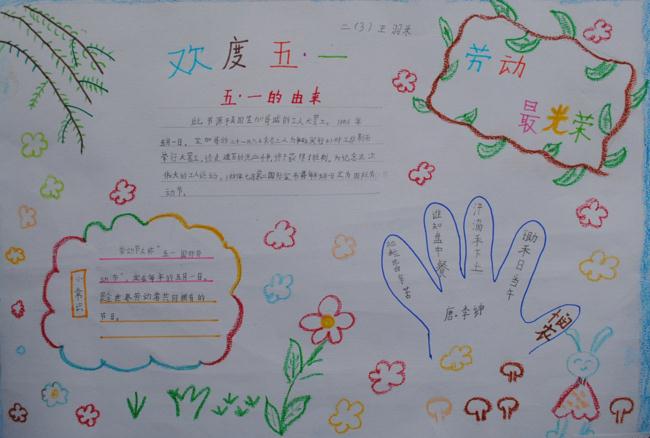 二(3) 王羽米
欢度五·一
劳动
最光荣
五·一的由来
此节源于美国芝加哥城的工人大罢工。1886年
5月1日,芝加哥的二十一万六千余工人为争取实行八小时工作制而
举行大罢工,经过艰苦的流血斗争,终于获得了胜利。为纪念这次
伟大的工人运动,
动节。
劳动节又称"五一国际劳
动节",定在每年的五月一日。
是世界劳动者共同拥有的
节日。
小常识
锄禾日当午
汗滴禾下土
谁知盘中餐
粒粒皆辛苦
唐·李绅